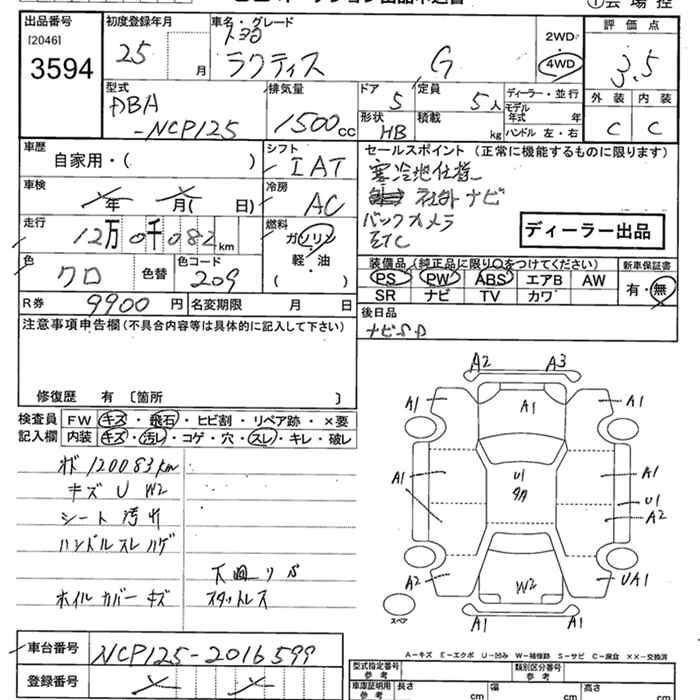 出品番号
[2046]
3594
初度登録年月
25 月
車名・グレード
トヨタ
ラクティス G
2WD・
4WD
評価点
3.5
外装 内装
C C
型式
DBA
-NCP125
排気量
1500cc
ドア 5
定員 5人
形状 HB
積載 kg
ディーラー・並行
モデル年式 年
ハンドル 左・右
車歴
自家用・( )
シフト
IAT
車検
年 月( 日)
冷房
AC
走行
12万0千082km
燃料
ガソリン
軽・油
( )
色
クロ
色替
色コード
209
R券 9900円
名変期限 月 日
セールスポイント (正常に機能するものに限ります)
寒冷地仕様
社外ナビ
バックカメラ
ETC
ディーラー出品
装備品 (純正品に限り○をつけてください)
PS PW ABS エアB AW
SR ナビ TV カワ
新車保証書
有・無
後日品
ナビSD
注意事項申告欄(不具合内容等は具体的に記入して下さい)
修復歴 有 〔箇所 〕
検査員
記入欄
FW キズ・飛石・ヒビ割・リペア跡・×要
内装 キズ・汚レ・コゲ・穴・スレ・キレ・破レ
120083km
キズ U W2
シート 汚れ
ハンドルスレ ハゲ
下廻りS
ホイルカバーキズ スタッドレス
A2 A3
A1 A1 A1
A1 U1 A1
U1
A2
A2 W2 UA1
A1 A1
スペア
A-キズ E-エクボ U-凹み W-補修跡 S-サビ C-腐食 ××-交換済
車台番号
NCP125-2016599
登録番号
型式指定番号
参考
類別区分番号
参考
車庫証明用
参考
長さ cm
幅 cm
高さ cm